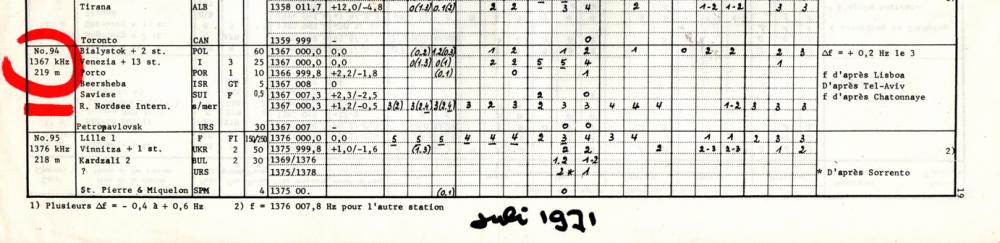 Tirana ALB 1358 011,7 +12,0/-4,8 0(1.3) 0.1(2) 2 2 3 4 2 1-2 1-2 3 3
Toronto CAN 1359 999 - 0
No.94 Bialystok + 2 st. POL 60 1367 000,0 0,0 (0.2) 1 2 1 2 1 0 2 2 2 3 Δf = + 0,2 Hz le 3
1367 kHz Venezia + 13 st. I 3 25 1367 000,0 0,0 0(1.3) 0(1) 2 2 5 5 4 1
219 m Porto POR 1 10 1366 999,8 +2,2/-1,8 (0.1) 0 1 f d'après Lisboa
Beersheba ISR GT 5 1367 008 0 D'après Tel-Aviv
Saviese SUI F 0,5 1367 002,5 +2,3/-2,5 2 0 f d'après Chatonnaye
R. Nordsee Intern. s/mer 1367 000,3 +1,2/-0,5 3(2) 3(2.4) 3(2.4) 3 2 3 2 3 3 4 4 4 1-2 3 3 3
Petropavlovsk URS 30 1367 007 - 0 0
No.95 Lille 1 F FI 150/250 1376 000,0 0,0 5 5 5 4 4 4 2 3 4 3 4 1 1 2 3 3
1376 kHz Vinnitza + 1 st. UKR 2 50 1375 999,8 +1,0/-1,6 (1.3) 2 2 2 2-3 2-3 1 2 2)
218 m Kardzali 2 BUL 2 30 1369/1376 1.2 1-2
? URS 1375/1378 2* 1 * D'après Sorrento
St. Pierre & Miquelon SPM 4 1375 00. (0.1) 0
19
1) Plusieurs Δf = - 0,4 à + 0,6 Hz 2) f = 1376 007,8 Hz pour l'autre station
Juli 1971